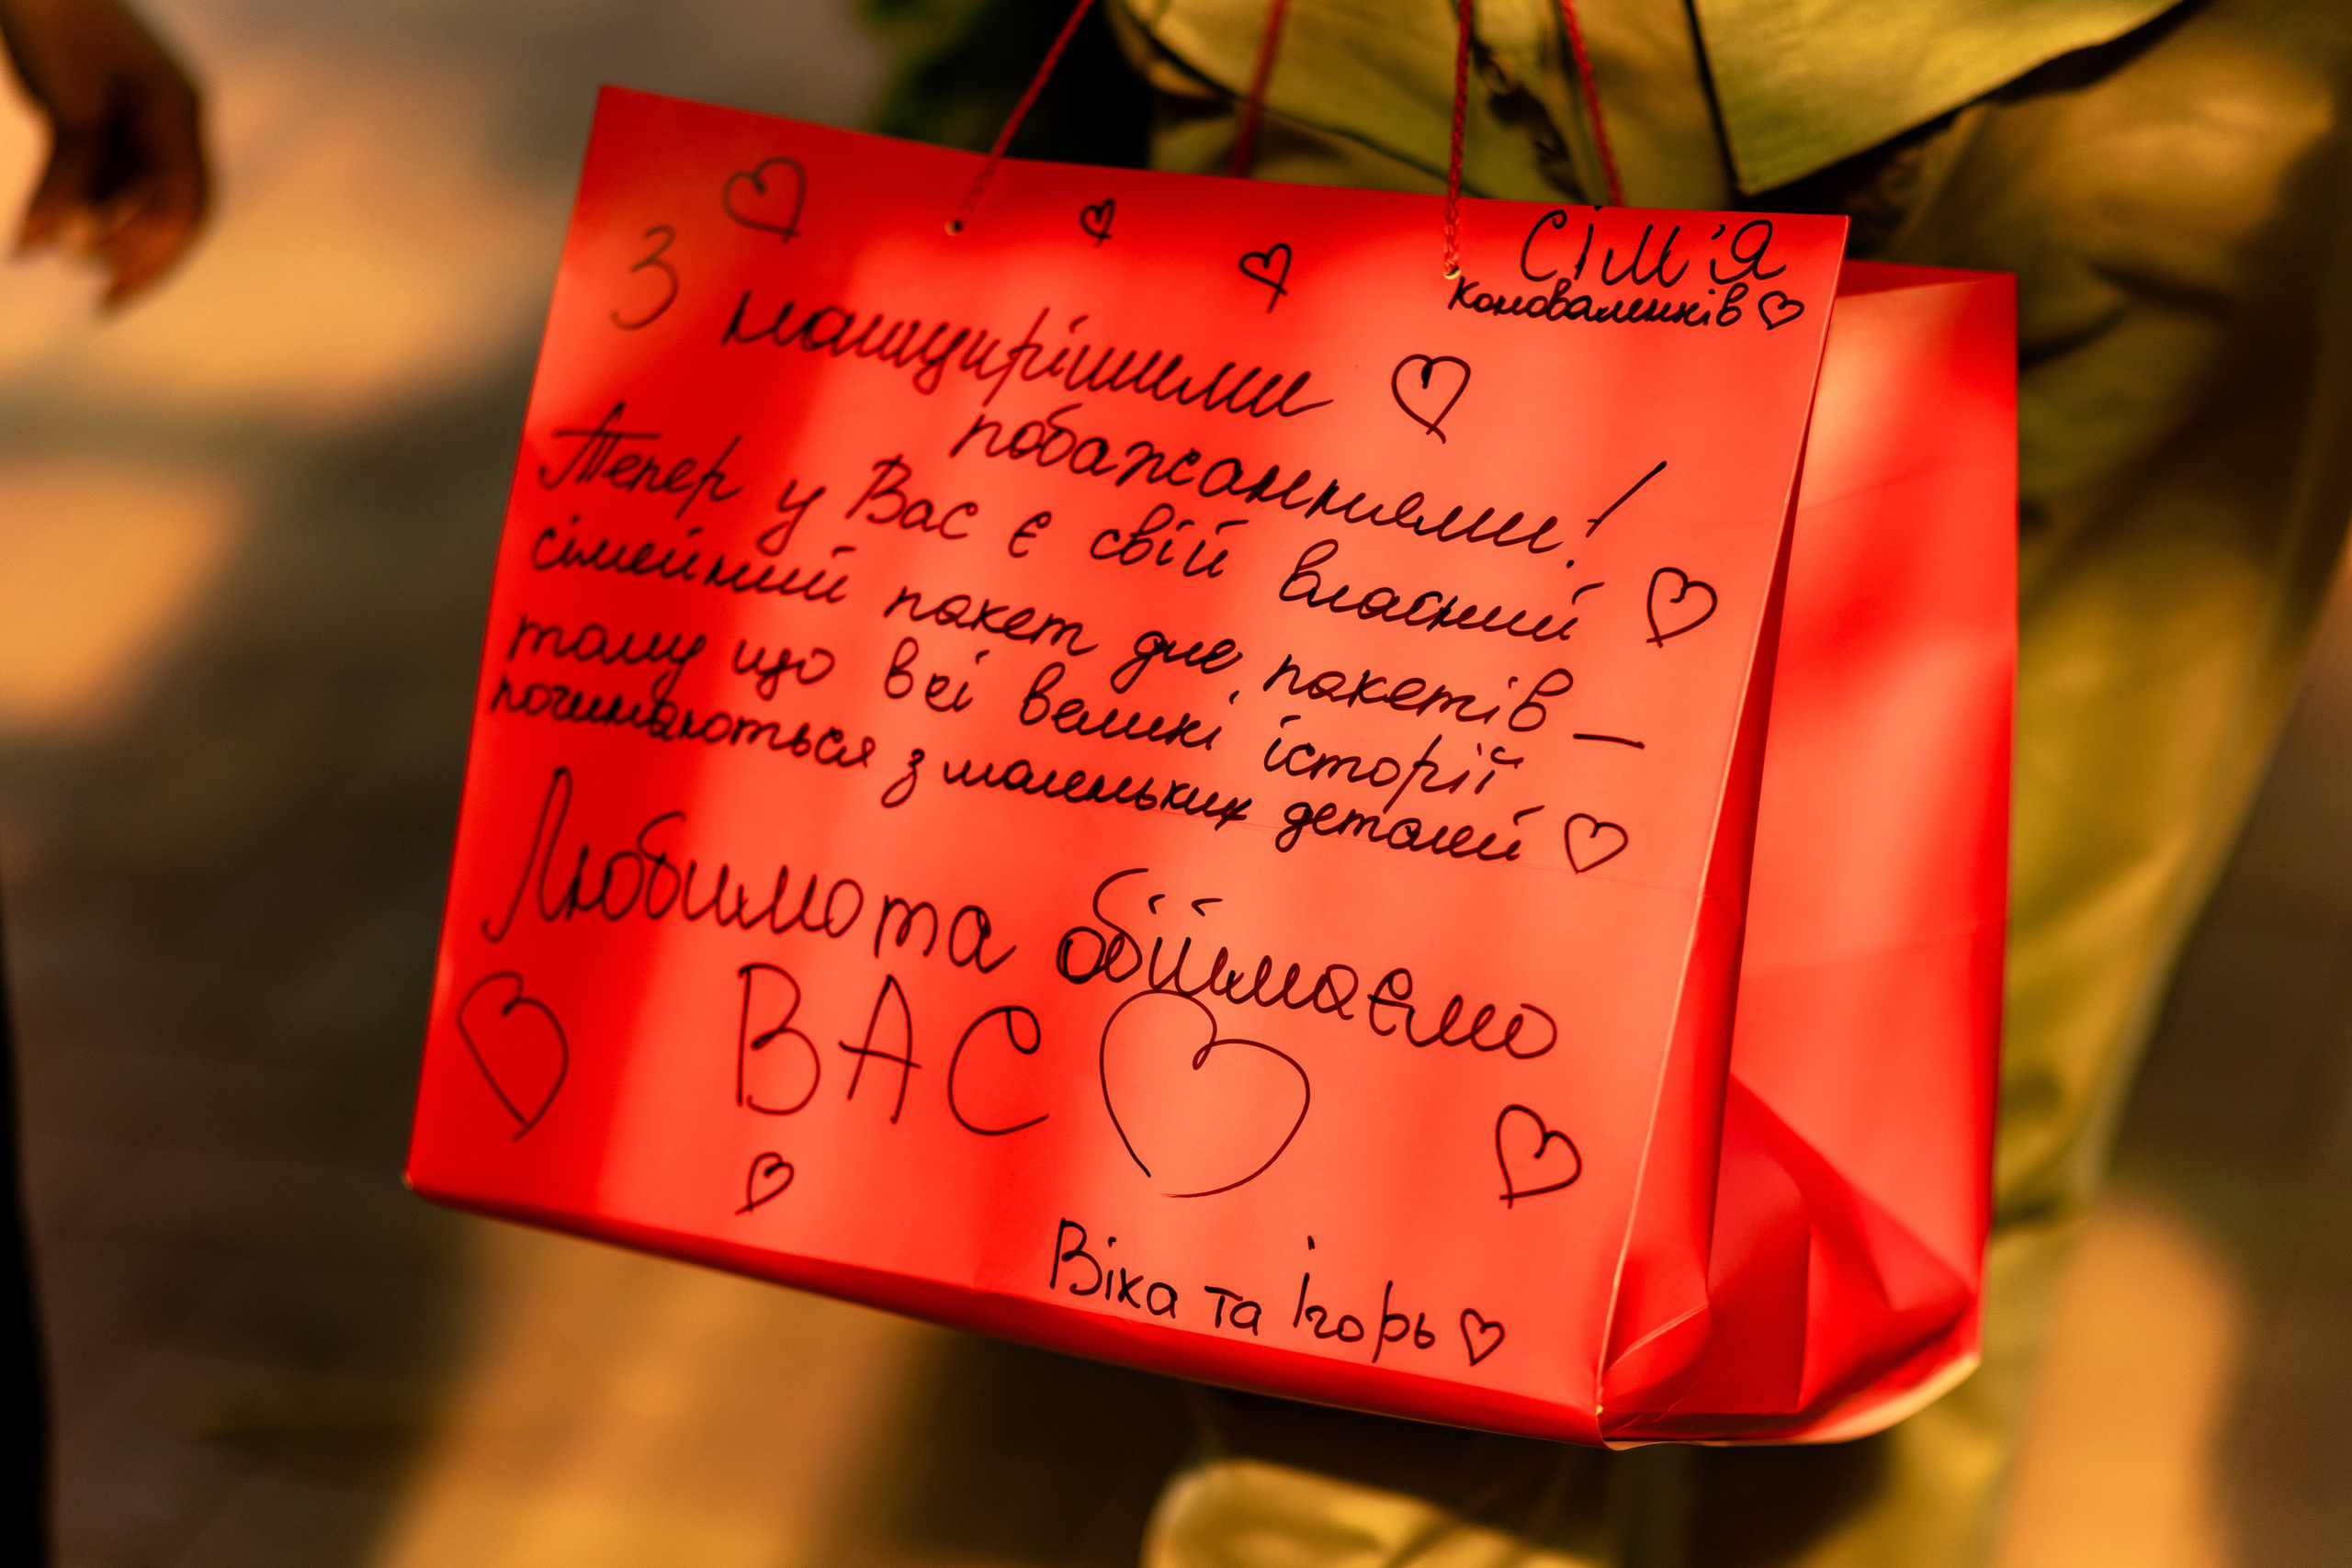 Сім'я
Коноваленків
З найщирішими
побажаннями!
Тепер у Вас є свій власний
сімейний пакет для пакетів —
тому що всі великі історії
починаються з маленьких деталей
Любимо та обіймаємо
ВАС
Віка та Ігорь